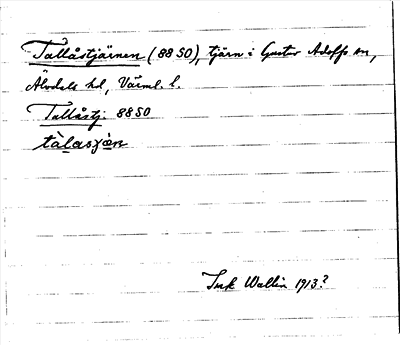 Tallåstjärnen (88 SO), tjärn i Gustav Adolfs sn,
Älvdals hd, Värml. l.
Tallåstj. 88 SO
Ink Wallin 1913?